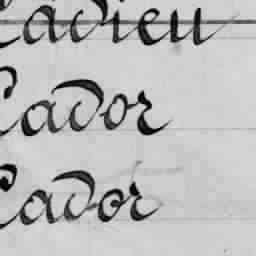 Cadieu
Cador
Cador